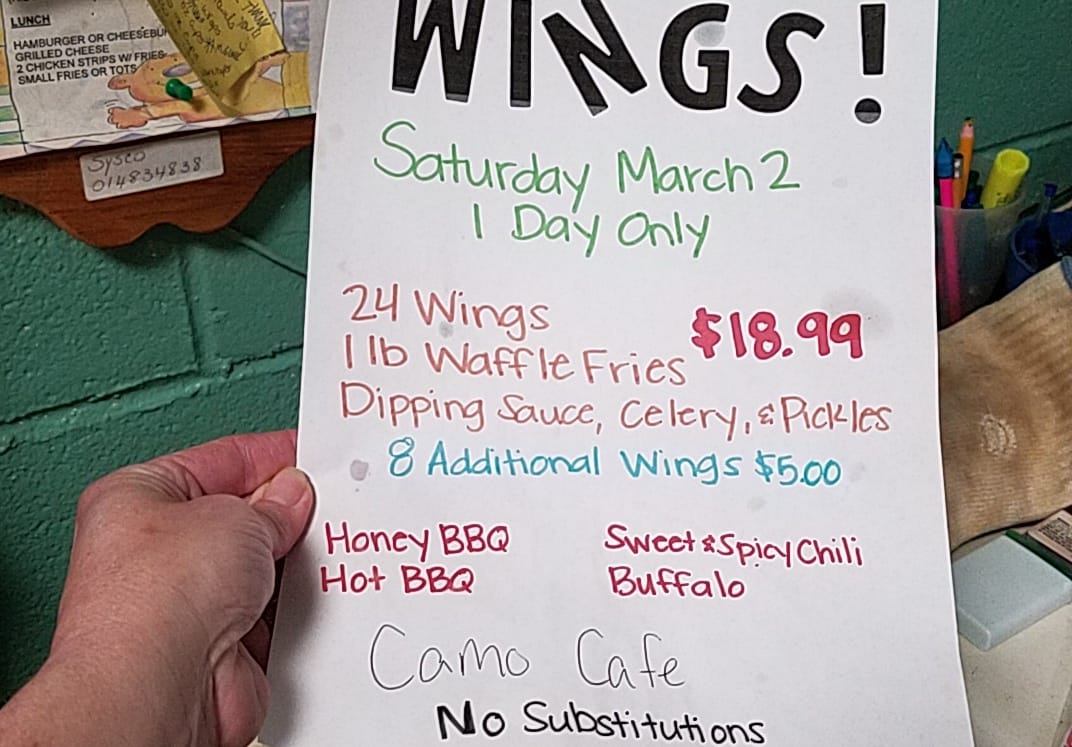 LUNCH
HAMBURGER OR CHEESEBU
GRILLED CHEESE
2 CHICKEN STRIPS W/ FRIES
SMALL FRIES OR TOTS
Sysco
014834838
WINGS!
Saturday March 2
1 Day Only
24 Wings
1 lb Waffle Fries $18.99
Dipping Sauce, Celery, & Pickles
8 Additional Wings $5.00
Honey BBQ Sweet & Spicy Chili
Hot BBQ Buffalo
Camo Cafe
No Substitutions